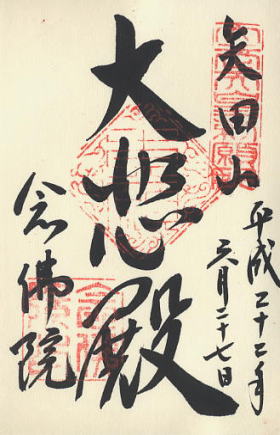 矢田山
平成二十二年
六月二十七日
大悲殿
念佛院